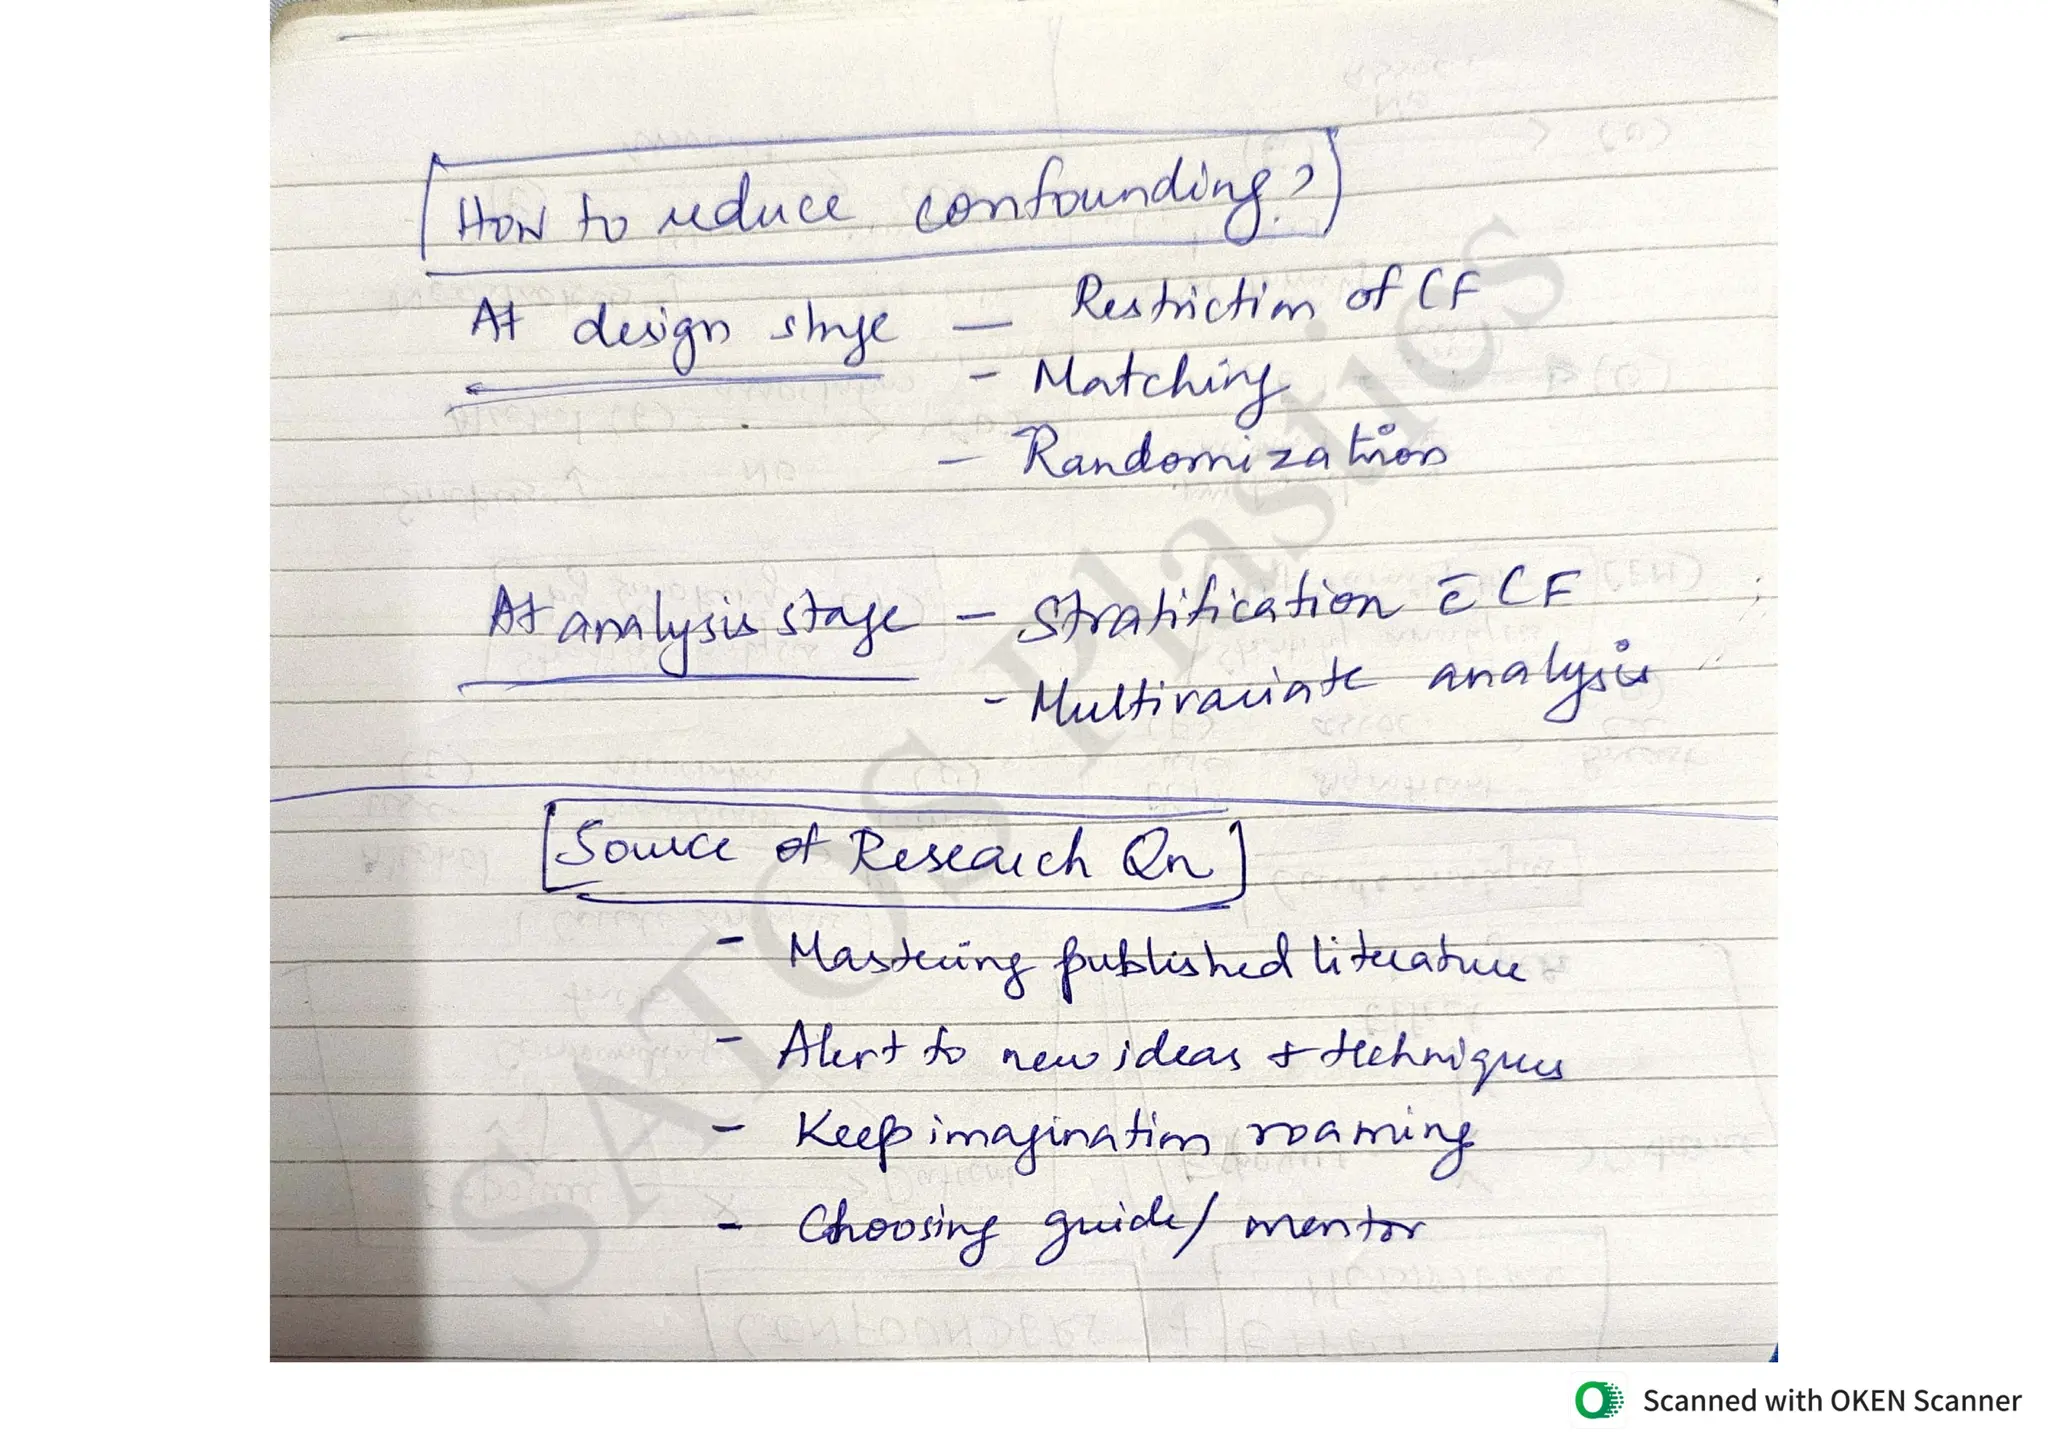 How to reduce confounding?
At design stage — Restriction of CF
- Matching
- Randomization
At analysis stage - Stratification c̄ CF
- Multivariate analysis
Source of Research Qn
- Mastering published literature
- Alert to new ideas + techniques
- Keep imagination roaming
- Choosing guide/ mentor
SATOS Plastics
Scanned with OKEN Scanner